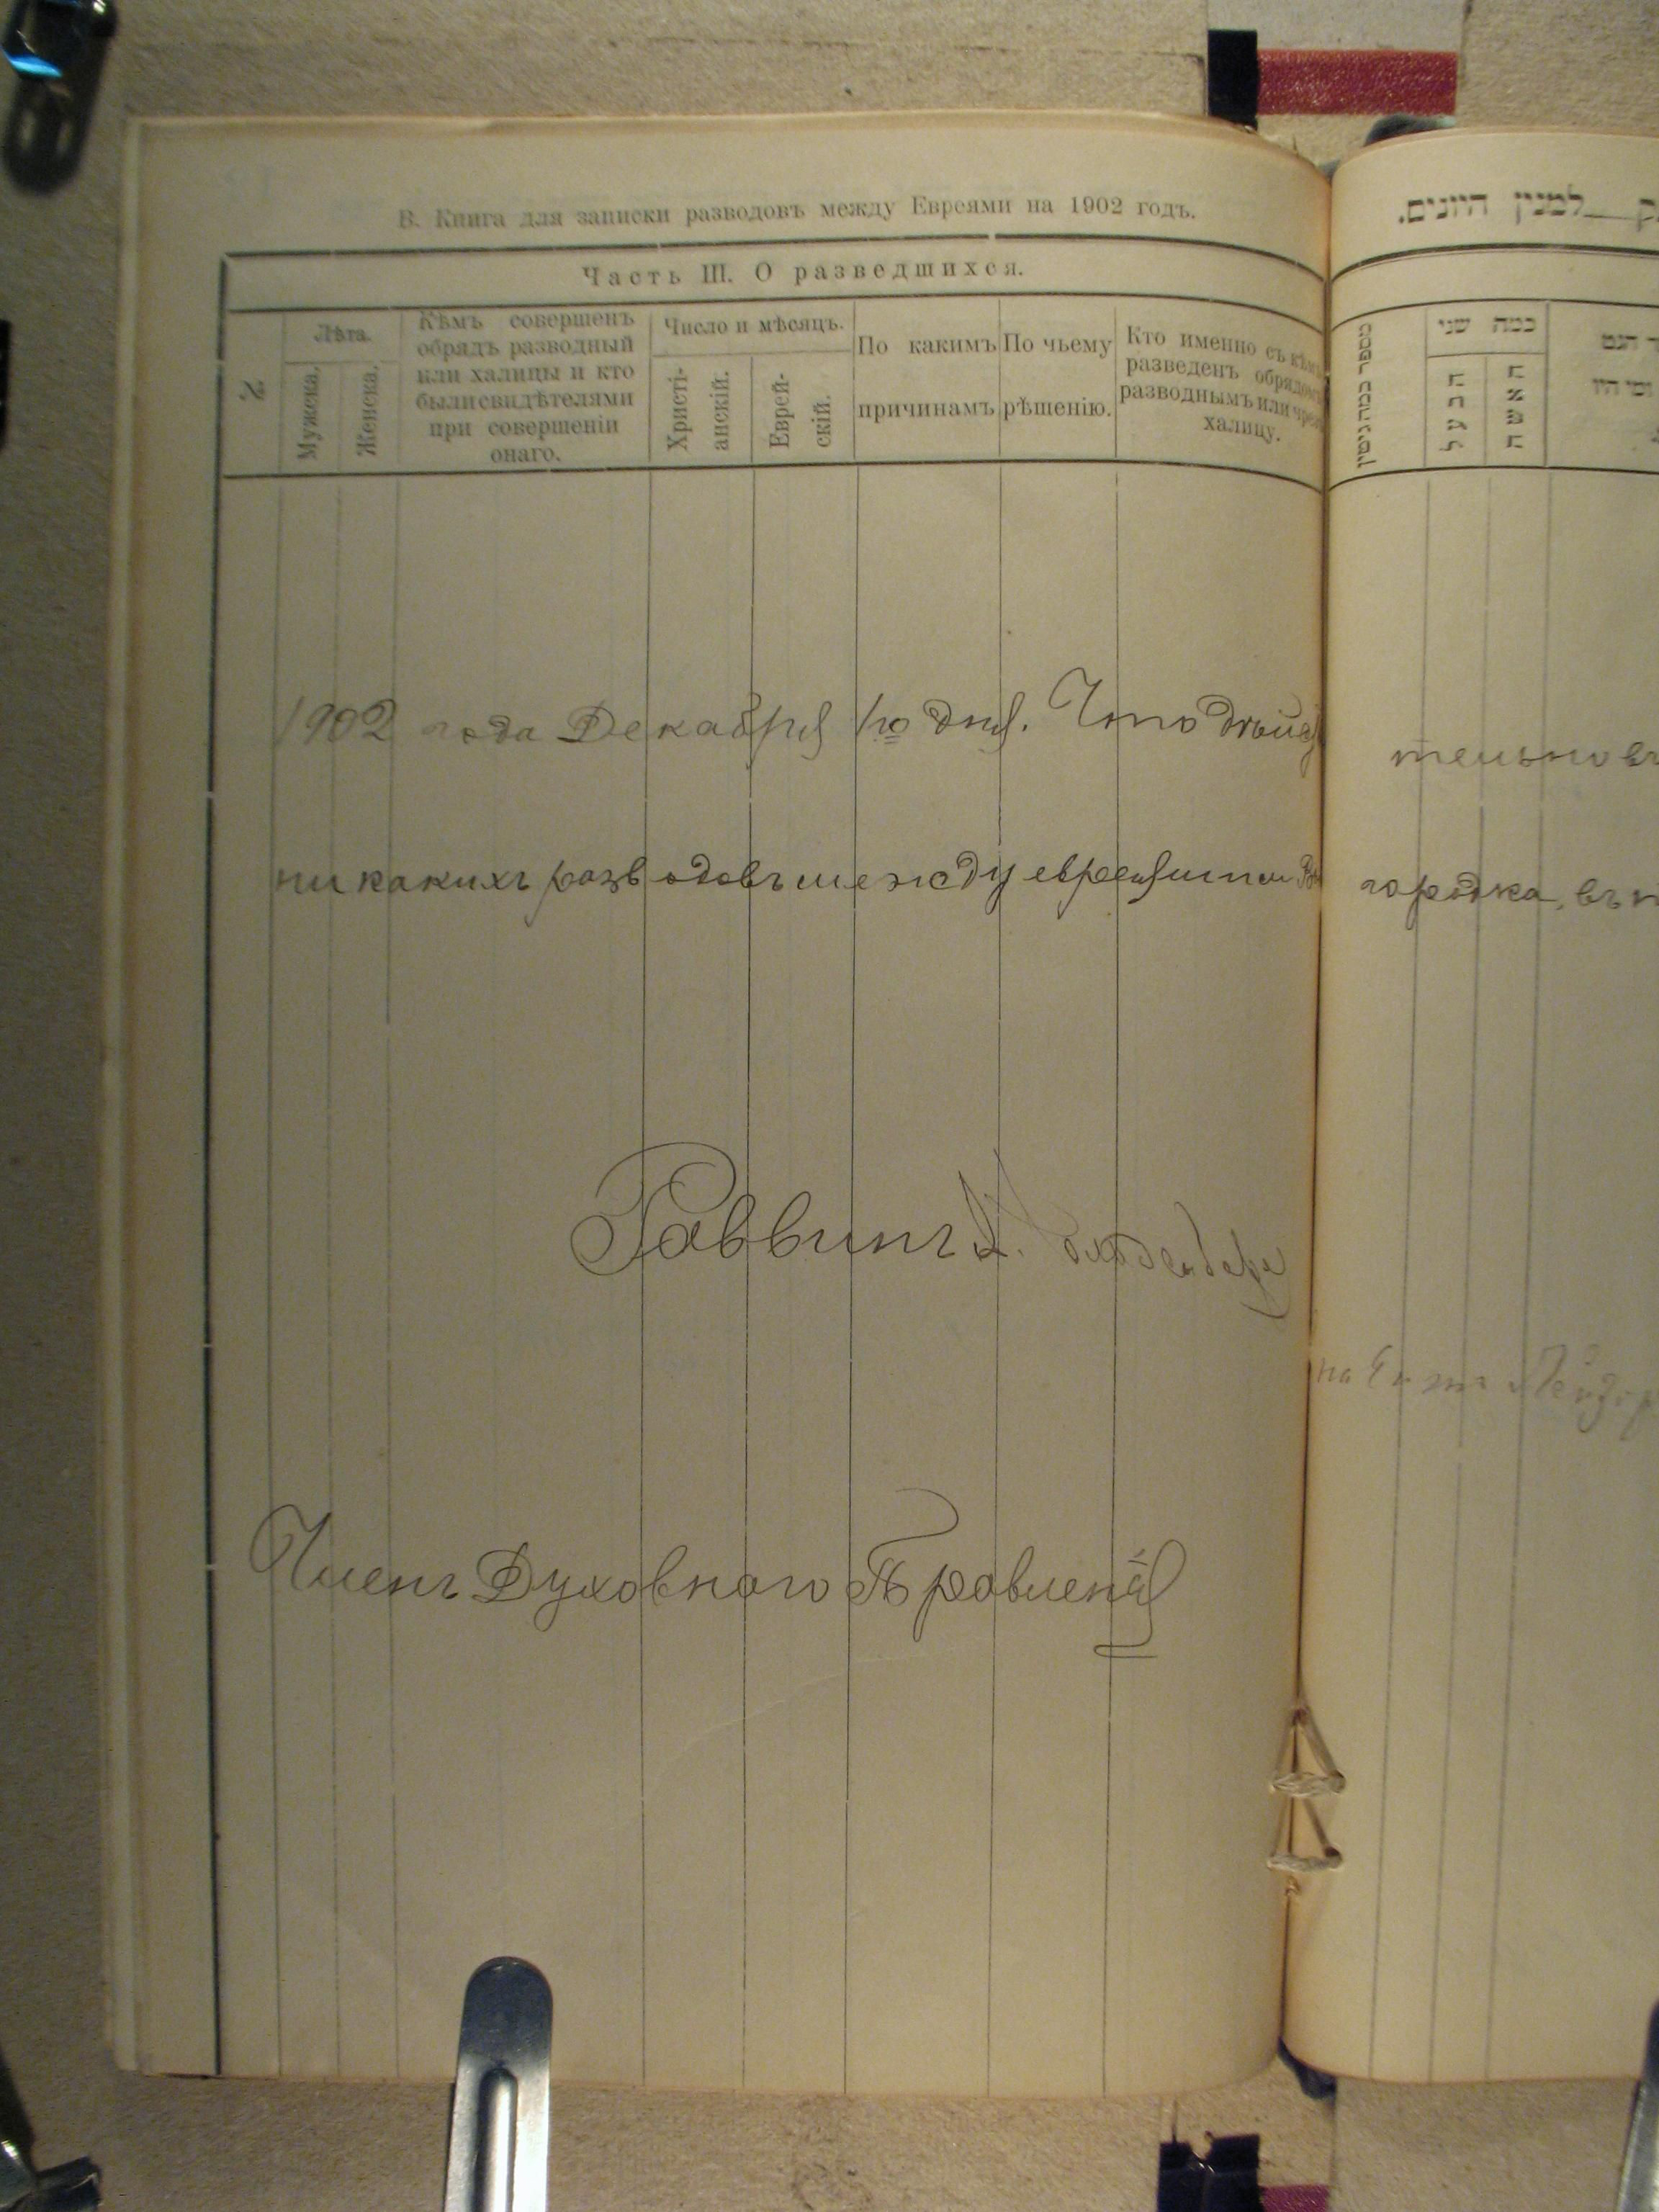 В. Книга для записки разводовъ между Евреями на 1902 годъ.
Часть III. О разведшихся.
№
Лѣта.
Мужеска.
Женска.
Кѣмъ совершенъ
обрядъ разводный
или халицы и кто
были свидѣтелями
при совершеніи
онаго.
Число и мѣсяцъ.
Христі-
анскій.
Еврей-
скій.
По какимъ
причинамъ
По чьему
рѣшенію.
Кто именно съ кѣмъ
разведенъ обрядомъ
разводнымъ или чрезъ
халицу.
1902 года Декабря 10 дня. Что дѣйст
никакихъ разводовъ между евреями
Раввинъ
Членъ Духовнаго Правленія
למנין היונים.
מספר כמה גיטין
כמה שני
הבעל
האשה
тельно въ
городка, въ